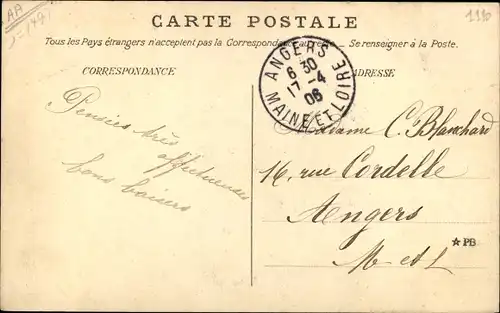 CARTE POSTALE
Tous les Pays étrangers n'acceptent pas la Correspondance au recto _ Se renseigner à la Poste.
CORRESPONDANCE
ADRESSE
ANGERS
6 30
17 -4
06
MAINE ET LOIRE
Pensées très
affectueuses
bons baisers
Madame C. Blanchard
16, rue Cordelle
Angers
M-et-L
☆ PB
AP